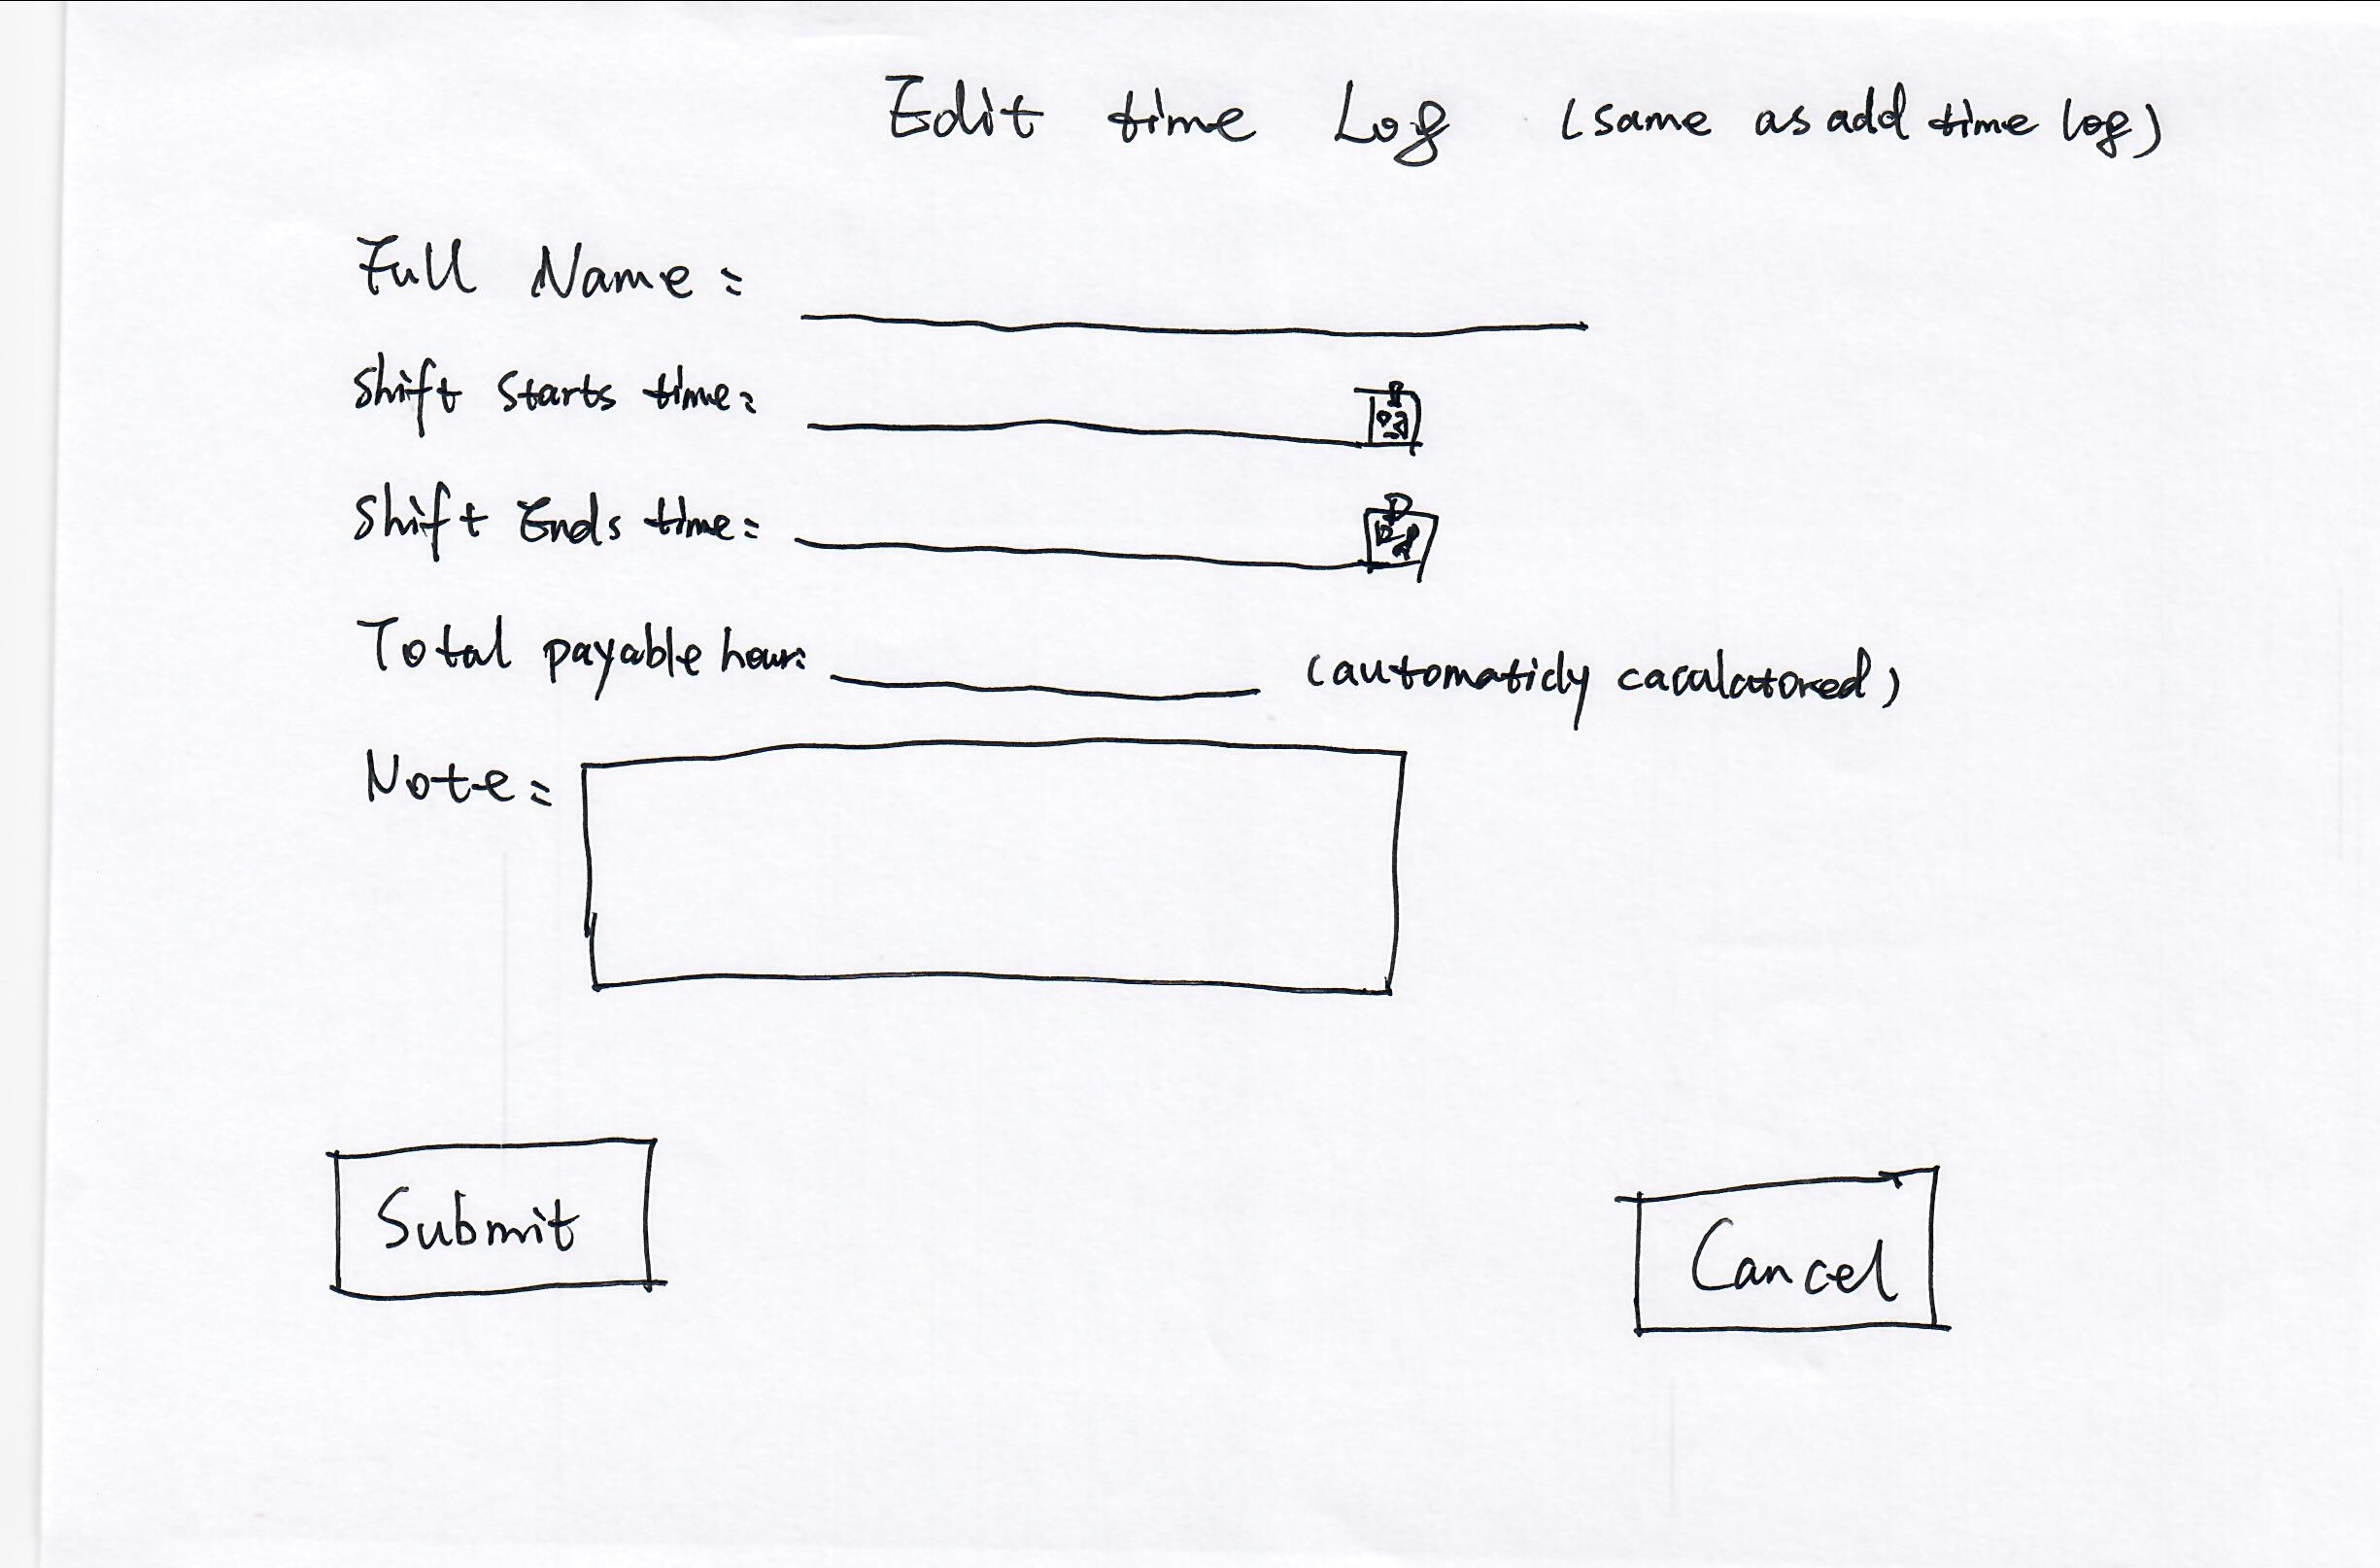 Edit time Log (same as add time log)
Full Name:
Shift Starts time:
Shift Ends time:
Total payable hour: (automaticly caculatored)
Note:
Submit
Cancel